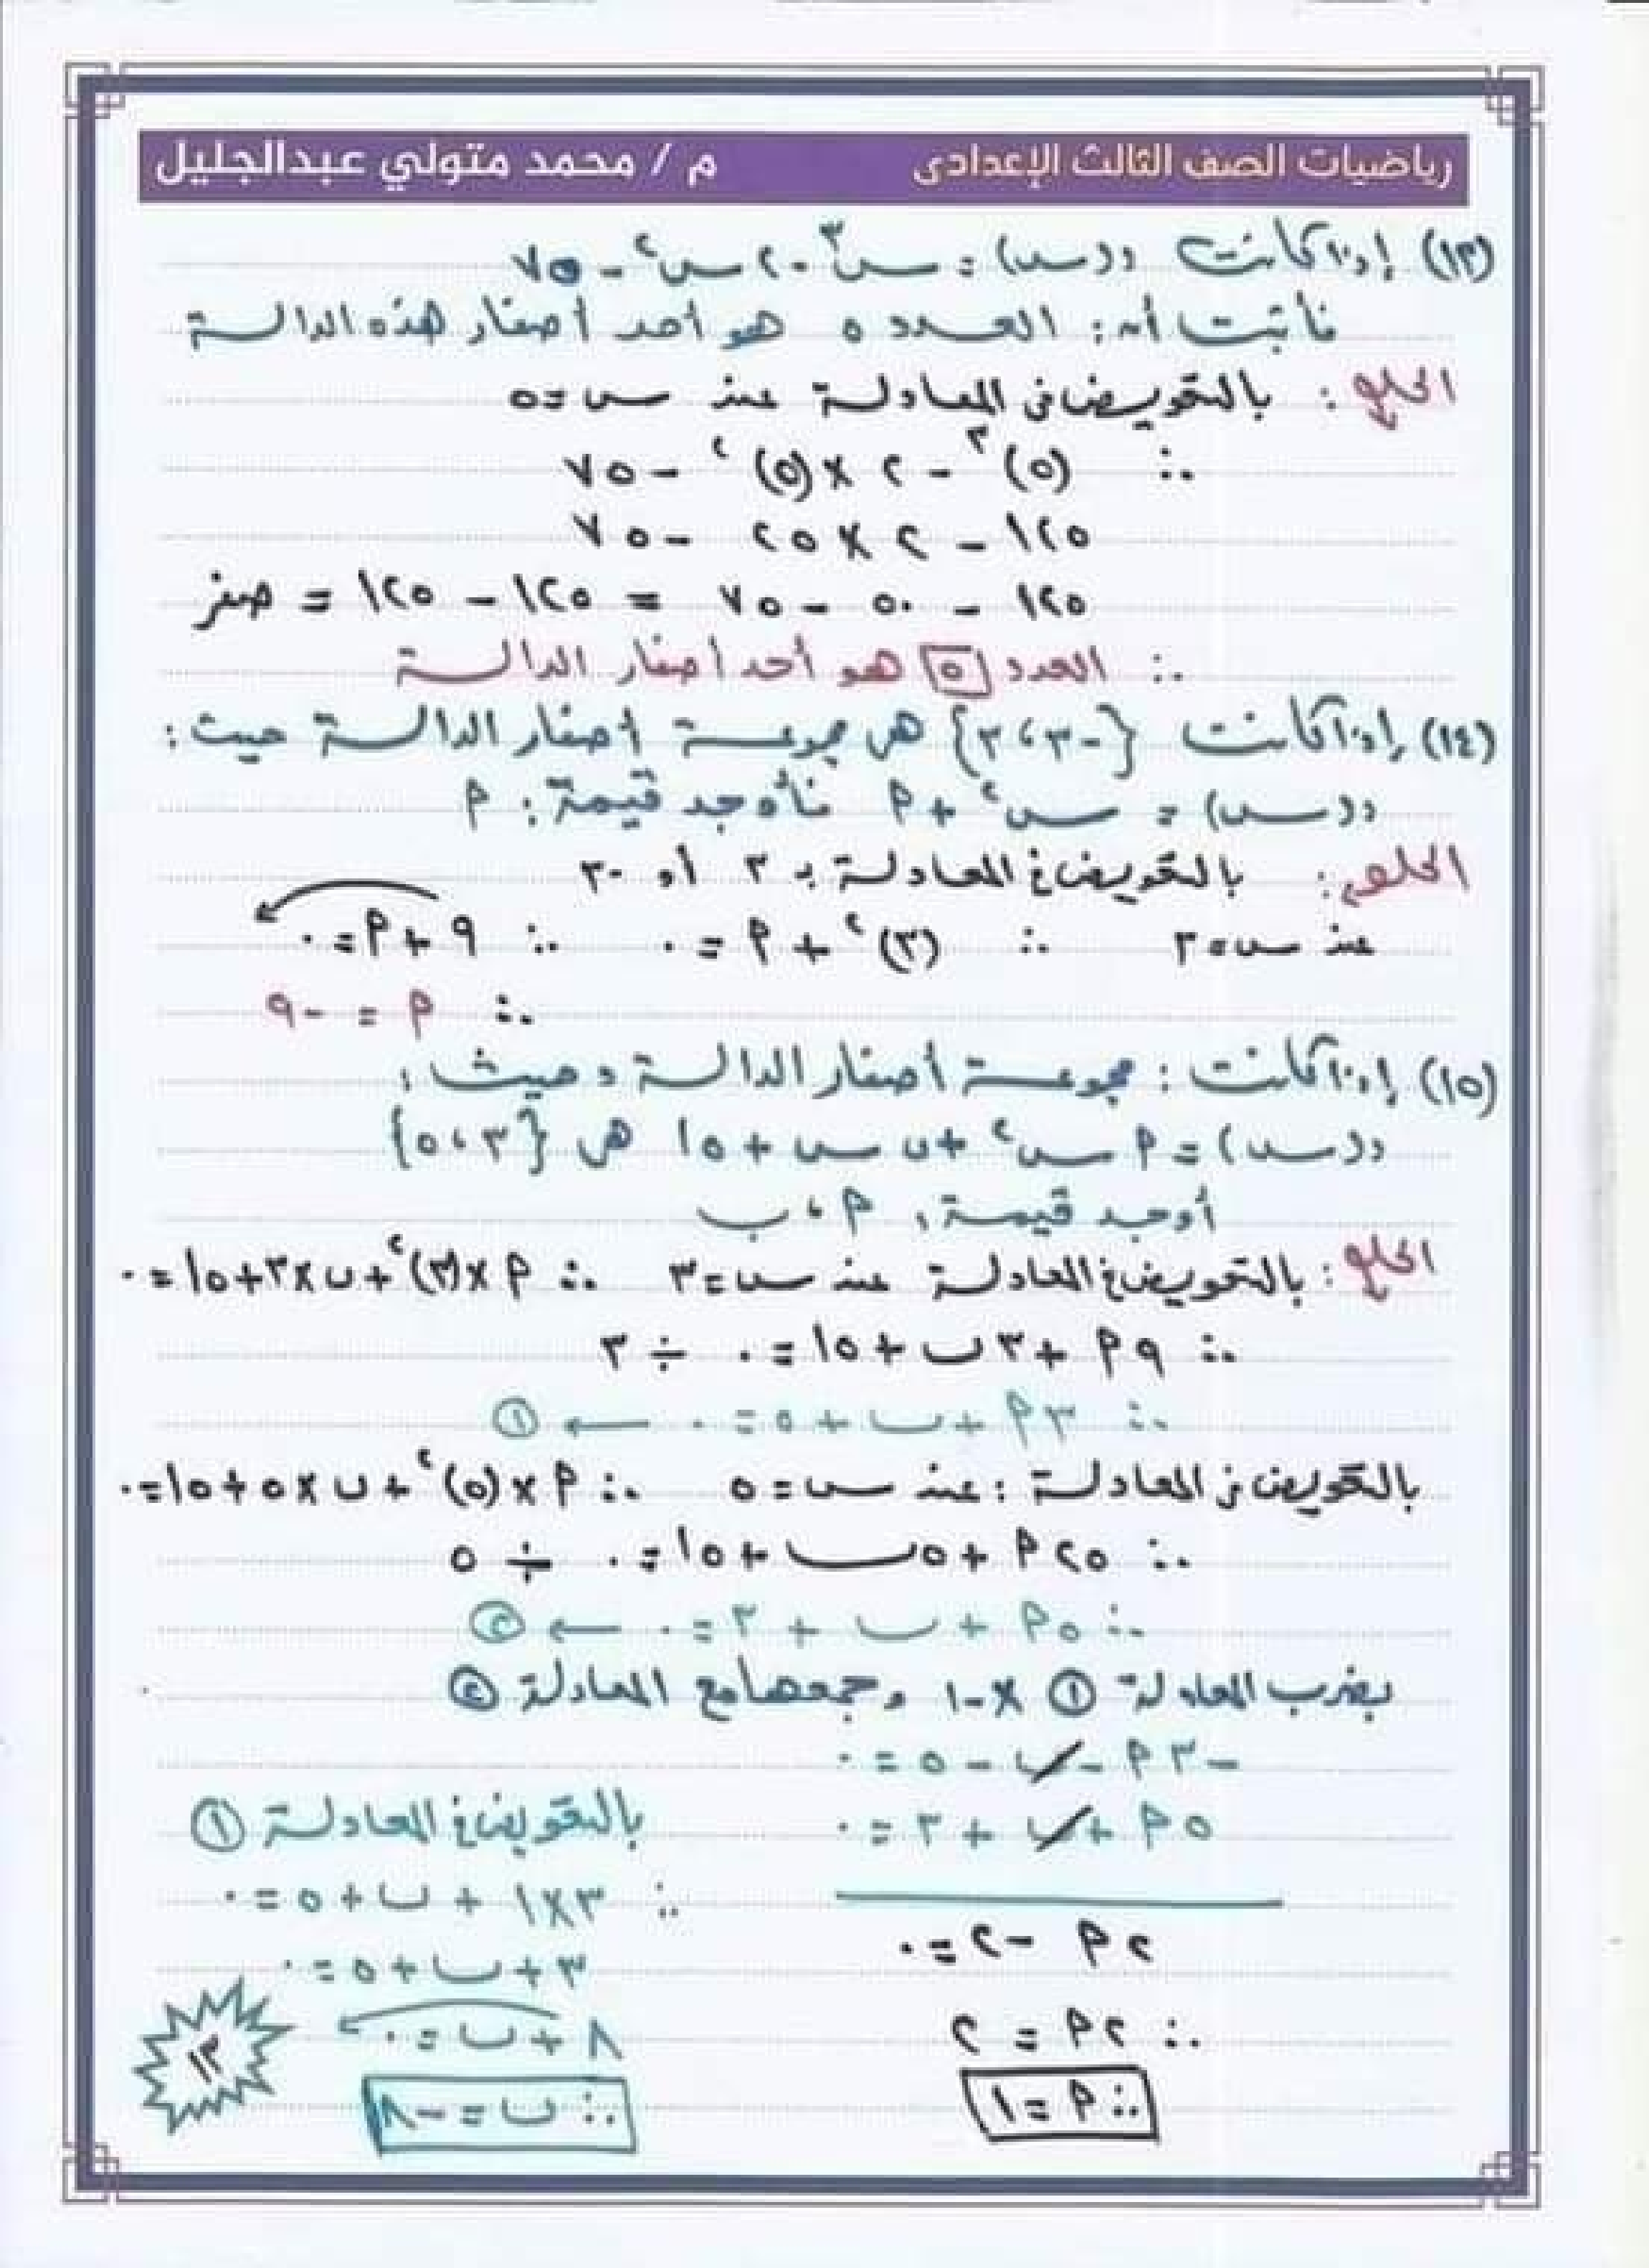 رياضيات الصف الثالث الإعدادى م / محمد متولي عبدالجليل
(١٣) إذا كانت د(س) = س٣ - ٢س٢ - ٧٥
فأثبت أن: العدد ٥ هو أحد أصفار هذه الدالة
الحل: بالتعويض فى المعادلة عند س=٥
∴ (٥)٣ - ٢ × (٥)٢ - ٧٥
١٢٥ - ٢ × ٢٥ - ٧٥
١٢٥ - ٥٠ - ٧٥ = ١٢٥ - ١٢٥ = صفر
∴ العدد ٥ هو أحد أصفار الدالة
(١٤) إذا كانت {-٣،٣} هى مجموعة أصفار الدالة حيث:
د(س) = س٢ + ٩ فأوجد قيمة: ٩
الحل: بالتعويض فى المعادلة بـ ٣ أو -٣
عند س=٣ ∴ (٣)٢ + م = ٠ ∴ ٩ + م = ٠
∴ م = -٩
(١٥) إذا كانت: مجموعة أصفار الدالة د حيث:
د(س) = م س٢ + ب س + ١٥ هى {٣،٥}
أوجد قيمة: م ، ب
الحل: بالتعويض فى المعادلة عند س=٣ ∴ م×(٣)٢ + ب×٣ + ١٥ = ٠
∴ ٩م + ٣ب + ١٥ = ٠ ÷ ٣
∴ ٣م + ب + ٥ = ٠ ← ①
بالتعويض فى المعادلة: عند س=٥ ∴ م×(٥)٢ + ب×٥ + ١٥ = ٠
∴ ٢٥م + ٥ب + ١٥ = ٠ ÷ ٥
∴ ٥م + ب + ٣ = ٠ ← ②
بضرب المعادلة ① × -١ وجمعها مع المعادلة ②
-٣م - ب - ٥ = ٠
٥م + ب + ٣ = ٠
٢م - ٢ = ٠
∴ ٢م = ٢
∴ م = ١
بالتعويض فى المعادلة ①
∴ ٣×١ + ب + ٥ = ٠
٣ + ب + ٥ = ٠
٨ + ب = ٠
∴ ب = -٨
١٣